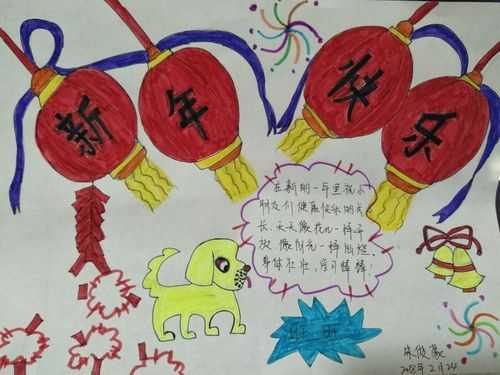 新年快乐
在新的一年里祝小
朋友们健康快乐的成
长、天天像花儿一样绽
放、像阳光一样灿烂、
身体壮壮,学习棒棒!
旺 旺
2018年2月24